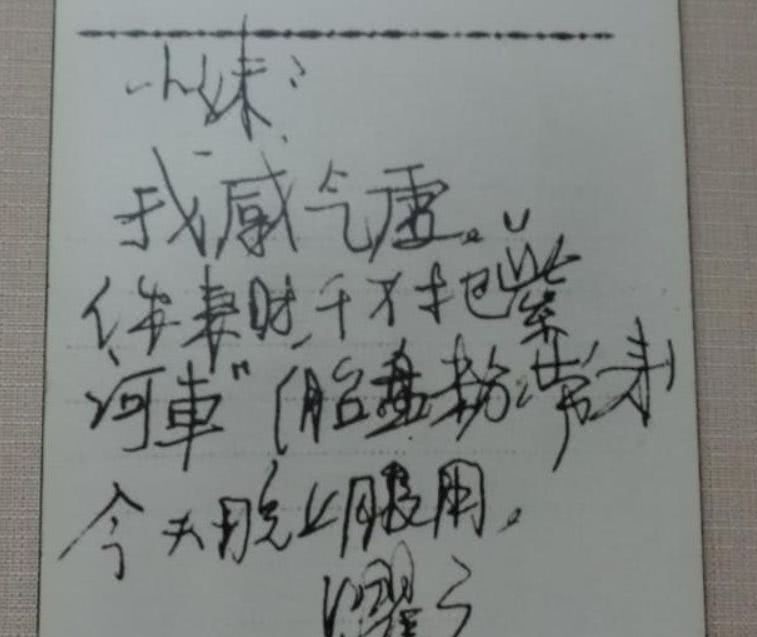 小妹:
我感气虚。
你来妻时,千万把“紫
河車”(胎盘粉)带来
今天晚上服用。